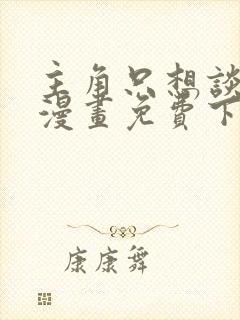 主角只想談
漫畫免費下
康康舞